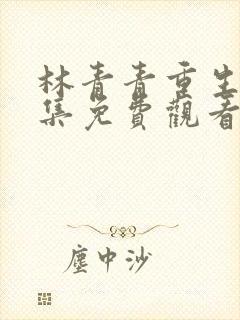 林青青重生
集免費觀看
塵中沙